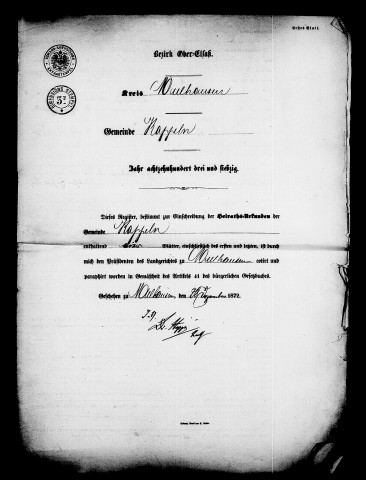 Erstes Blatt.
Bezirk Ober-Elsaß.
Kreis Mülhausen
Gemeinde Kappeln
Jahr achtzehnhundert drei und siebzig.
Dieses Register, bestimmt zur Einschreibung der Heiraths-Urkunden der
Gemeinde Kappeln
enthaltend Blätter, einschließlich des ersten und letzten, ist durch
mich den Präsidenten des Landgerichts zu Mülhausen cotirt und
paraphirt worden in Gemäßheit des Artikels 41 des bürgerlichen Gesetzbuches.
Geschehen zu Mülhausen, den Dezember 1872.